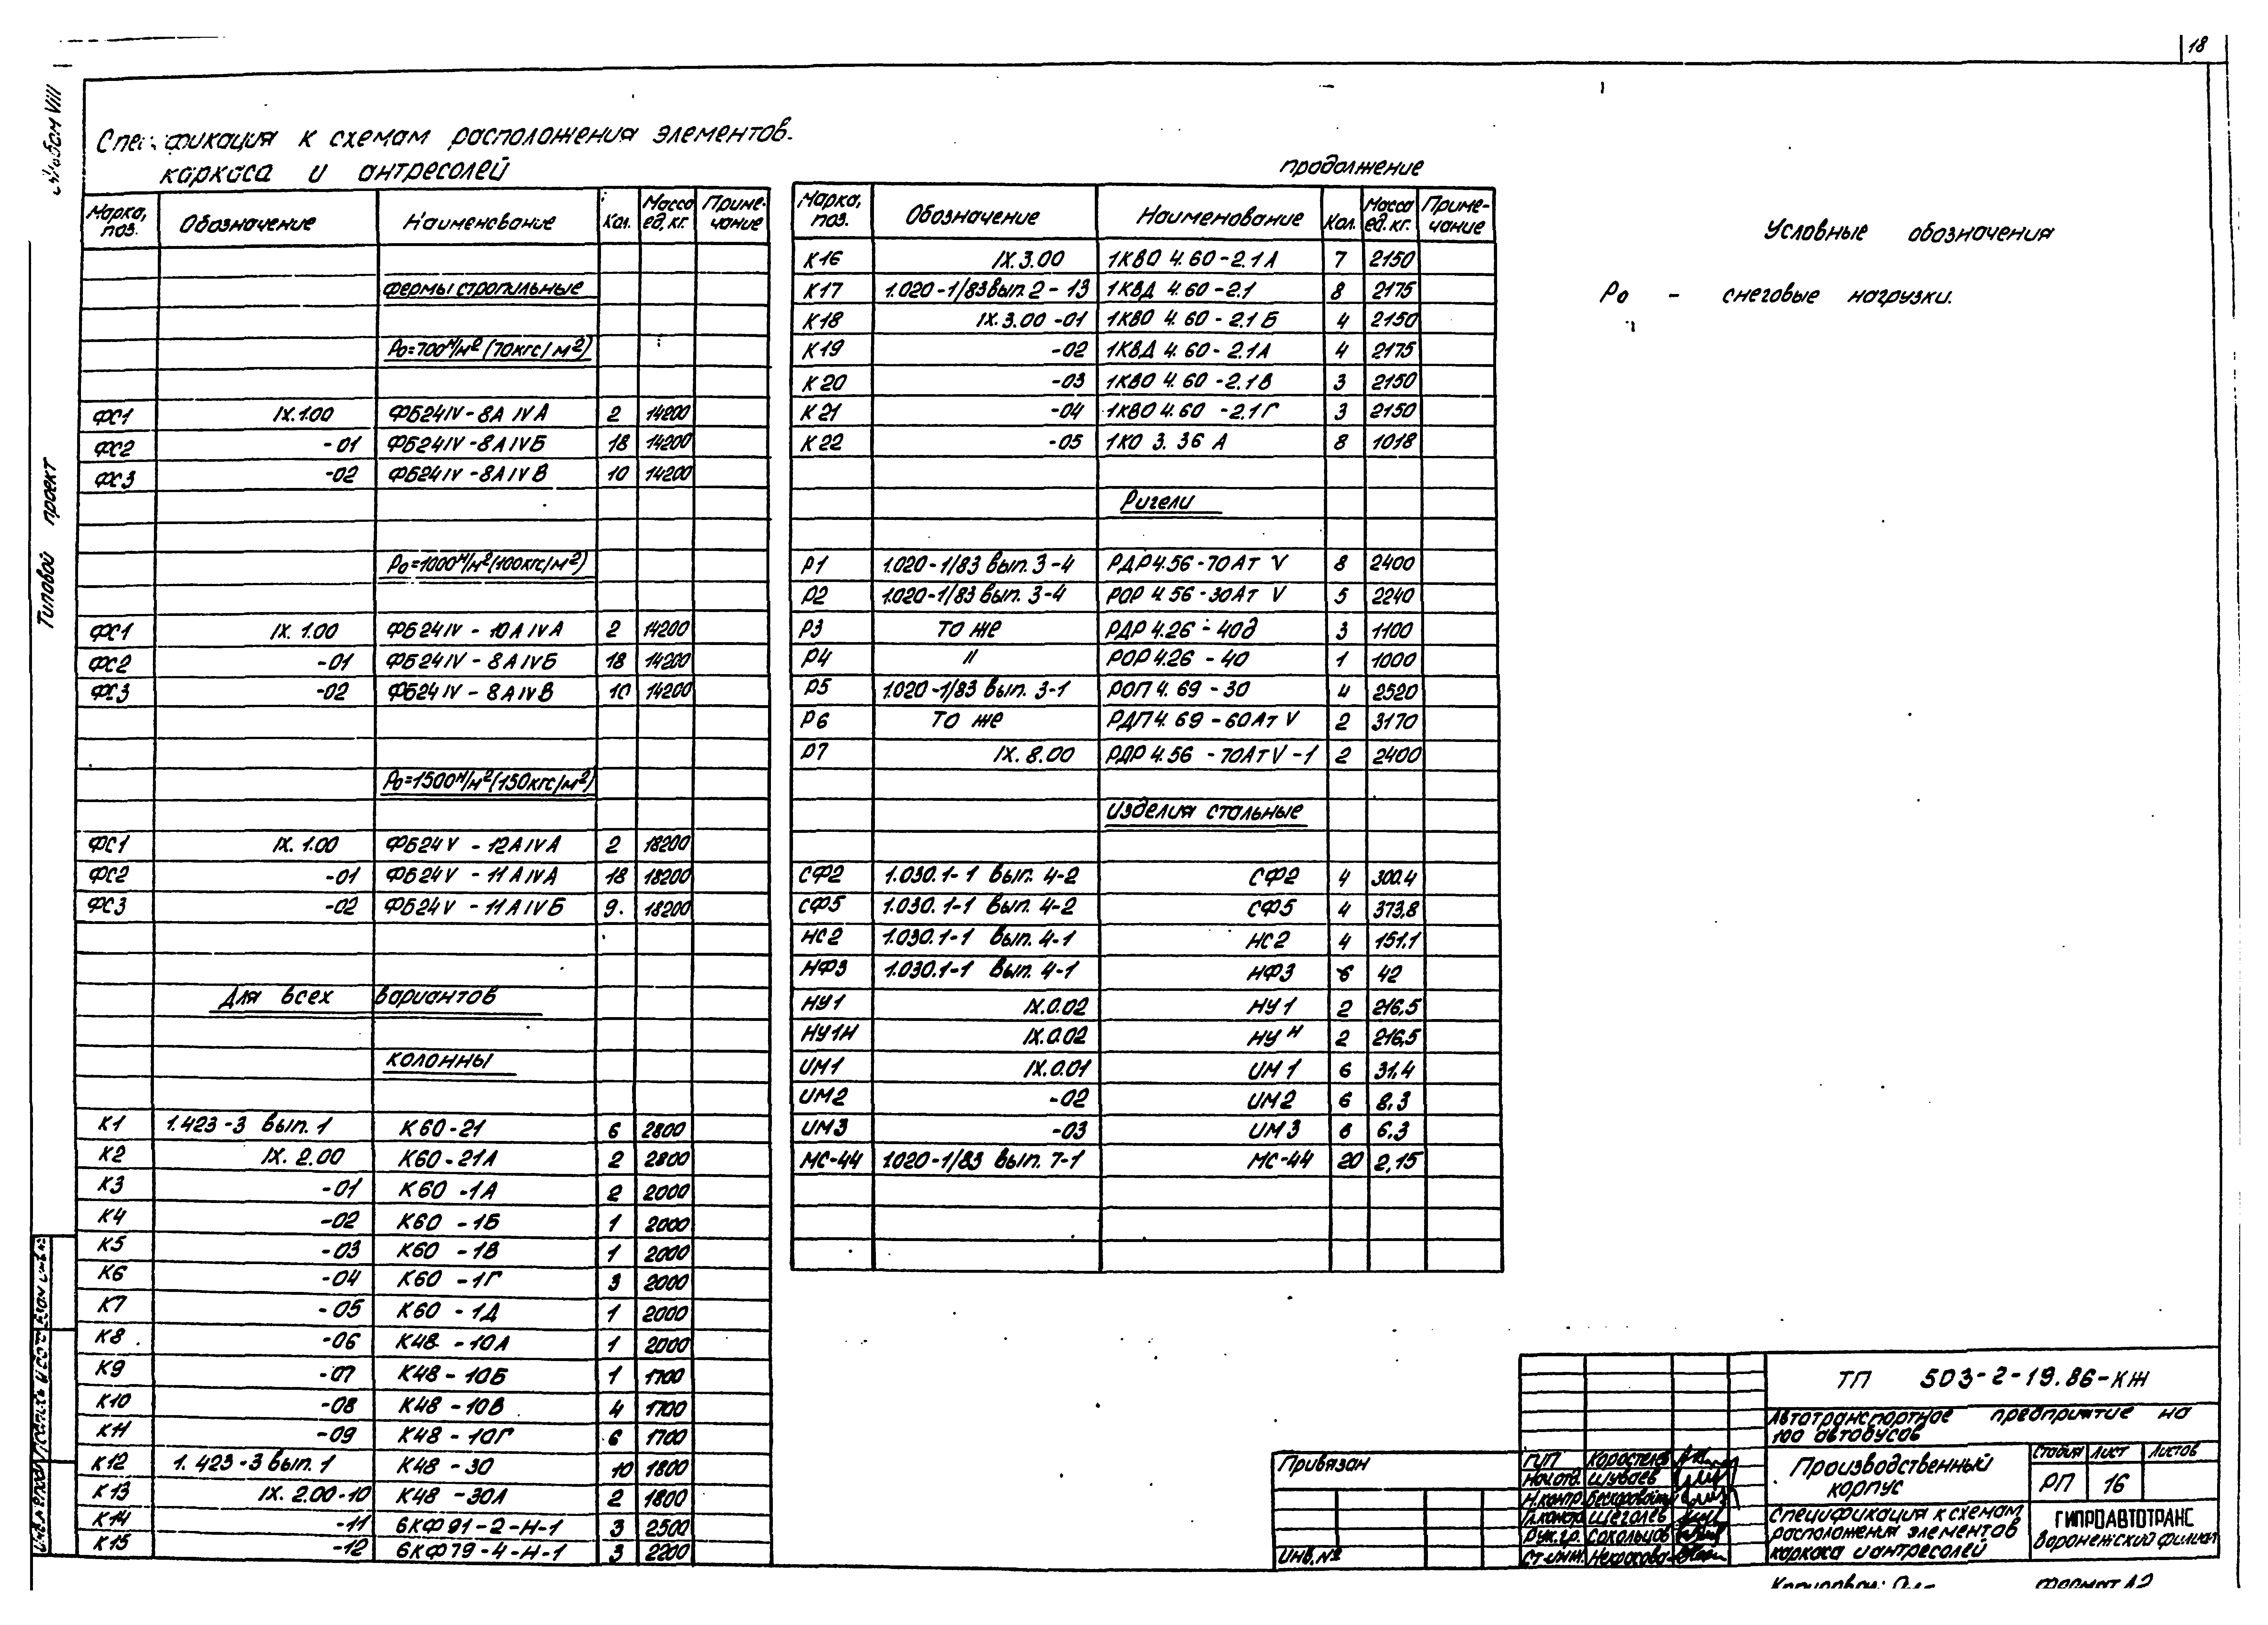 18
Альбом VIII
Типовой проект
Спецификация к схемам расположения элементов
каркаса и антресолей
Марка, поз. Обозначение Наименование Кол. Масса ед, кг. Примечание
Фермы стропильные
Ро=700н/м² (70кгс/м²)
ФС1 IX.1.00 ФБ24IV-8АIVА 2 14200
ФС2 -01 ФБ24IV-8АIVБ 18 14200
ФС3 -02 ФБ24IV-8АIVВ 10 14200
Ро=1000н/м²(100кгс/м²)
ФС1 IX.1.00 ФБ24IV-10АIVА 2 14200
ФС2 -01 ФБ24IV-8АIVБ 18 14200
ФС3 -02 ФБ24IV-8АIVВ 10 14200
Ро=1500н/м²(150кгс/м²)
ФС1 IX.1.00 ФБ24V-12АIVА 2 18200
ФС2 -01 ФБ24V-11АIVА 18 18200
ФС3 -02 ФБ24V-11АIVБ 9. 18200
Для всех вариантов
Колонны
К1 1.423-3 вып.1 К60-21 6 2800
К2 IX.2.00 К60-21А 2 2800
К3 -01 К60-1А 2 2000
К4 -02 К60-1Б 1 2000
К5 -03 К60-1В 1 2000
К6 -04 К60-1Г 3 2000
К7 -05 К60-1Д 1 2000
К8 -06 К48-10А 1 2000
К9 -07 К48-10Б 1 1700
К10 -08 К48-10В 4 1700
К11 -09 К48-10Г 6 1700
К12 1.423-3 вып.1 К48-30 10 1800
К13 IX.2.00-10 К48-30А 2 1800
К14 -11 6КФ91-2-Н-1 3 2500
К15 -12 6КФ79-4-Н-1 3 2200
продолжение
Марка, поз. Обозначение Наименование Кол. Масса ед. кг. Примечание
К16 IX.3.00 1КВО 4.60-2.1А 7 2150
К17 1.020-1/83вып.2-13 1КВД 4.60-2.1 8 2175
К18 IX.3.00-01 1КВО 4.60-2.1Б 4 2150
К19 -02 1КВД 4.60-2.1А 4 2175
К20 -03 1КВО 4.60-2.1В 3 2150
К21 -04 1КВО 4.60-2.1Г 3 2150
К22 -05 1КО 3.36 А 8 1018
Ригели
Р1 1.020-1/83 вып.3-4 РДР4.56-70Ат V 8 2400
Р2 1.020-1/83 вып.3-4 РОР 4.56-30Ат V 5 2240
Р3 То же РДР 4.26-40д 3 1100
Р4 " РОР 4.26-40 1 1000
Р5 1.020-1/83 вып.3-1 РОП 4.69-30 4 2520
Р6 То же РДП 4.69-60Ат V 2 3170
Р7 IX.8.00 РДР 4.56-70Ат V-1 2 2400
Изделия стальные
СФ2 1.030.1-1 вып.4-2 СФ2 4 300.4
СФ5 1.030.1-1 вып.4-2 СФ5 4 373,8
НС2 1.030.1-1 вып.4-1 НС2 4 151.1
НФ3 1.030.1-1 вып.4-1 НФ3 6 42
НУ1 IX.0.02 НУ1 2 216,5
НУ1Н IX.0.02 НУ Н 2 216,5
ИМ1 IX.0.01 ИМ1 6 31,4
ИМ2 -02 ИМ2 6 8,3
ИМ3 -03 ИМ3 6 6,3
МС-44 1.020-1/83 вып.7-1 МС-44 20 2,15
Условные обозначения
Ро - снеговые нагрузки.
Привязан
Инв.№
ГИП Коростелев
Нач.отд. Шуваев
Н.контр.
Гл.констр. Щеголев
Рук.гр. Сокольцов
Ст.инж. Некрасова
ТП 503-2-19.86-КЖ
Автотранспортное предприятие на
100 автобусов
Производственный
корпус
Стадия Лист Листов
РП 16
Спецификация к схемам
расположения элементов
каркаса и антресолей
ГИПРОАВТОТРАНС
Воронежский филиал
Копировал:
Формат А2